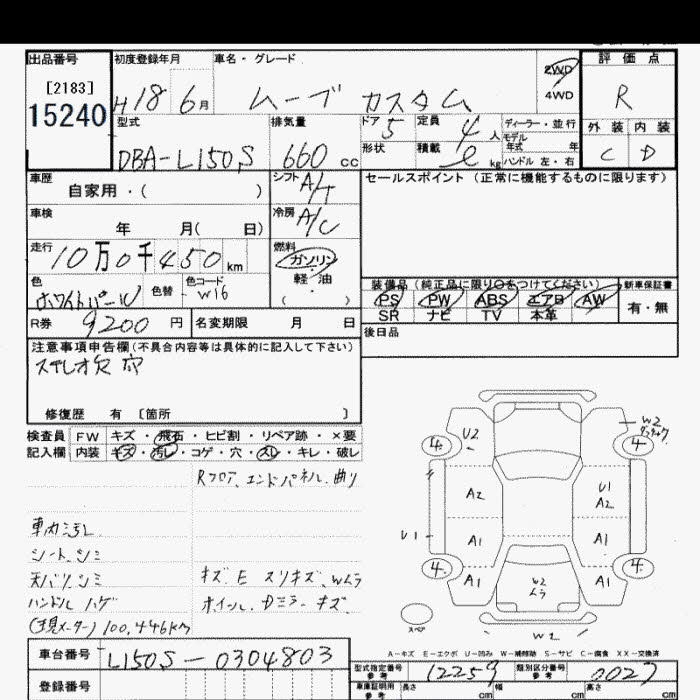 出品番号 初度登録年月 車名・グレード 評価点
[2183]
15240
H18 6月 ムーブ カスタム
2WD
4WD
R
型式 排気量 ドア 定員 ディーラー・並行
DBA-L150S 660cc 5 4人 モデル年式 年
形状 積載 kg ハンドル 左・右
外装 内装
C D
車歴 シフト A/T セールスポイント(正常に機能するものに限ります)
自家用・( )
車検 冷房 A/C
年 月( 日)
走行 燃料
10万0千450km ガソリン
軽・油
( )
色 ホワイトパール 色替 色コード W16
装備品(純正品に限り○をつけてください) 新車保証書
PS PW ABS エアB AW 有・無
SR ナビ TV 本革
R券 9200円 名変期限 月 日
後日品
注意事項申告欄(不具合内容等は具体的に記入して下さい)
ステレオ欠 穴
修復歴 有 [箇所 ]
検査員 FW キズ・飛石・ヒビ割・リペア跡・×要
記入欄 内装 キズ・汚レ・コゲ・穴・スレ・キレ・破レ
Rフロア、エンドパネル 曲り
車内汚レ
シートシミ
天バリシミ キズ E スリキズ、Wムラ
ハンドルハゲ ホイール、ドミラーキズ
(現メーター)100,446km
W2
4 U2 4
A2 U1
A2
U1 A1 A1
4 A1 A1 4
W2
ムラ
スペア
W2
A-キズ E-エクボ U-凹み W-補修跡 S-サビ C-腐食 XX-交換済
車台番号 L150S-0304803
型式指定番号 参考 12259 類別区分番号 参考 0027
登録番号
車庫証明用 参考 長さ cm 幅 cm 高さ cm